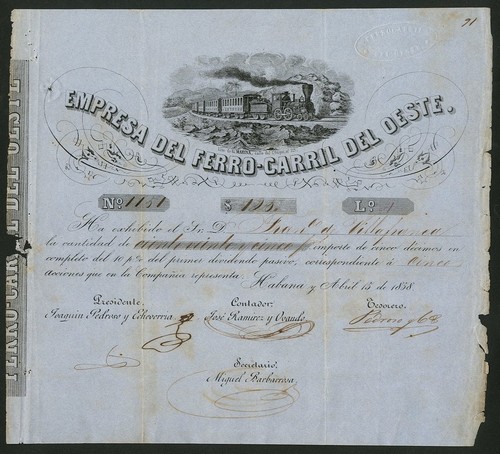 91
EMPRESA DEL FERRO-CARRIL DEL OESTE.
Nº 1151 $ 125. Lº 1
Ha exhibido el Sr. D. Franca Villafranca
la cantidad de ciento veinte y cinco ps importe de cinco décimos en
completo del 10 p% del primer dividendo pasivo, correspondiente á cinco
acciones que en la Compañía representa. Habana y Abril 15 de 1858
Presidente. Contador. Tesorero.
Joaquin Pedroso y Echevarria José Ramirez y Ovando Pedroso y Ca
Secretario.
Miguel Barbarrosa.
FERRO-CARRIL DEL OESTE